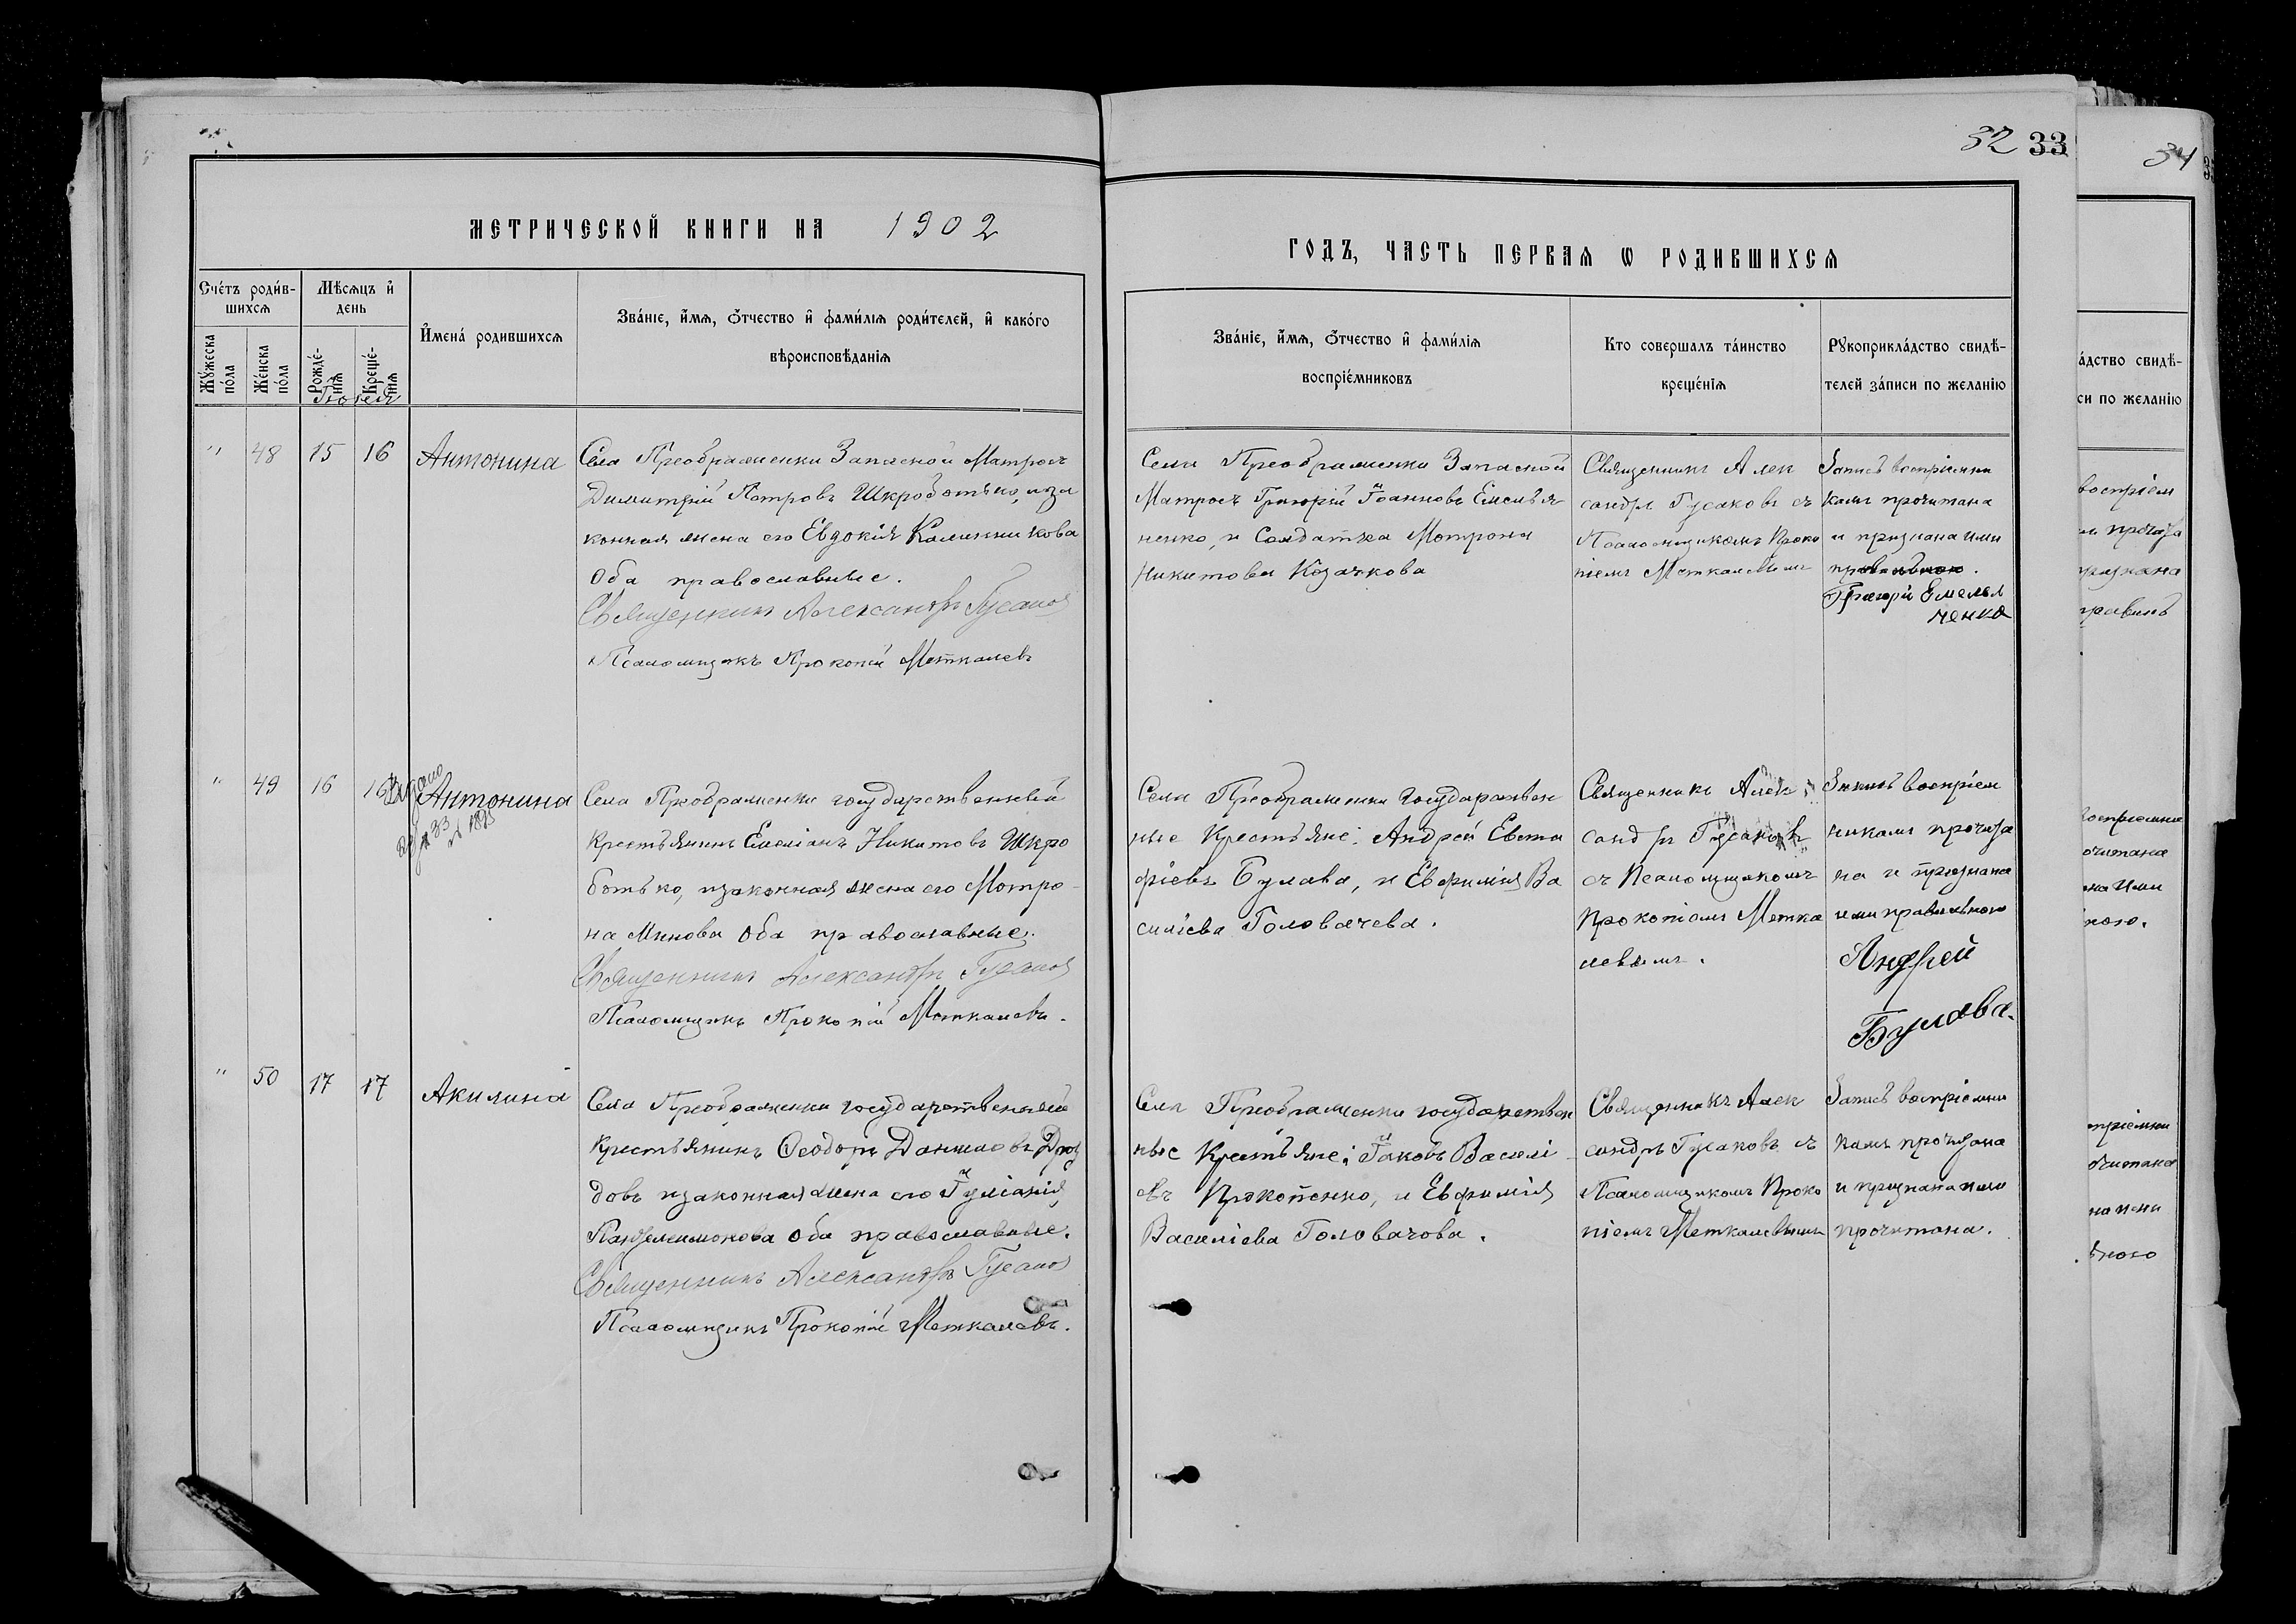 32 33
34
МЕТРИЧЕСКОЙ КНИГИ НА 1902
ГОДЪ, ЧАСТЬ ПЕРВАЯ Ѡ РОДИВШИХСЯ
Счетъ родив-
шихся
Мѣсяцъ и
день
Мужеска
пола
Женска
пола
Рожде-
нія
Креще-
нія
Имена родившихся
Званіе, имя, отчество и фамилія родителей, и какого
вѣроисповѣданія
Званіе, имя, отчество и фамилія
воспріемниковъ
Кто совершалъ таинство
крещенія
Рукоприкладство свидѣ-
телей записи по желанію
" 48 15 16 Антонина
Села Преображенки Запасной Матросъ
Димитрій Петровъ Шкроботько, и за
конная жена его Евдокія Калинникова
Оба православные.
Священникъ Александръ Гусаковъ
Псаломщикъ Прокопій Меткалевъ
Села Преображенки Запасной
Матросъ Григорій Іоанновъ Емелья
ненко, и Солдатка Матрона
Никитова Козачкова
Священникъ Алек
сандръ Гусаковъ съ
Псаломщикомъ Проко
піемъ Меткалевымъ
Запись воспріемни
камъ прочитана
и признана ими
правильною.
Григорій Емелья
ненко
" 49 16 16 Антонина
Выдано
Села Преображенки государственный
крестьянинъ Емеліанъ Никитовъ Шкро
ботько, и законная жена его Матро-
на Минова Оба православные.
Священникъ Александръ Гусаковъ
Псаломщикъ Прокопій Меткалевъ.
Села Преображенки Государствен
ные Крестьяне: Андрей Евста
фіевъ Булава, и Евфимія Ва
силіева Головачева.
Священникъ Алек
сандръ Гусаковъ
съ Псаломщикомъ
Прокопіемъ Метка
левымъ.
Запись воспріем
никамъ прочита
на и признана
ими правильною
Андрей
Булава.
" 50 17 17 Акилина
Села Преображенки государственный
крестьянинъ Ѳеодоръ Даниловъ
довъ и законная жена его Іуліанія
Пантелеимонова Оба православные.
Священникъ Александръ Гусаковъ
Псаломщикъ Прокопій Меткалевъ.
Села Преображенки государствен
ные Крестьяне: Іаковъ Василі
евъ Прокопенко, и Евфимія
Василіева Головачова.
Священникъ Алек
сандръ Гусаковъ съ
Псаломщикомъ Проко
піемъ Меткалевымъ
Запись воспріемни
камъ прочитана
и признана ими
прочитана.